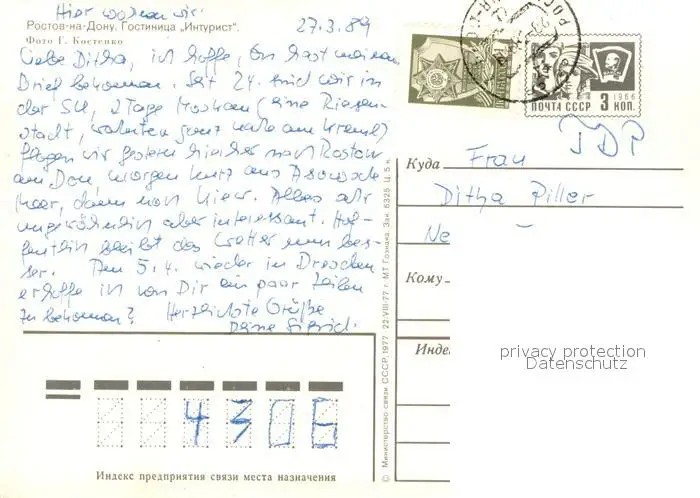 Hier wohnen wir.
Ростов-на-Дону. Гостиница „Интурист".
Фото Г. Костенко
27.3.89
Liebe Ditha, ich hoffe, Du hast meinen
Brief bekommen. Seit 24. sind wir in
der SU, 2 Tage Moskau (eine Riesen-
stadt, wohnten ganz nahe am Kreml)
flogen wir gestern hierher nach Rostow
am Don, morgen kurz ans Asowsche
Meer, dann nach Kiew. Alles sehr
ungewöhnlich aber interessant. Hof-
fentlich bleibt das Wetter nun bes-
ser. Am 5.4. wieder in Dresden
erhoffe ich von Dir ein paar Zeilen
zu bekommen? Herzlichste Grüße
Deine Sigrid.
ПОЧТА СССР 3 КОП.
1966
Куда
Frau
Ditha Piller
Ne
Кому
Инде
privacy protection
Datenschutz
4306
Индекс предприятия связи места назначения
© Министерство связи СССР, 1977 22.VIII-77 г. МТ Гознака. Зак. 6325 Ц. 5 к.